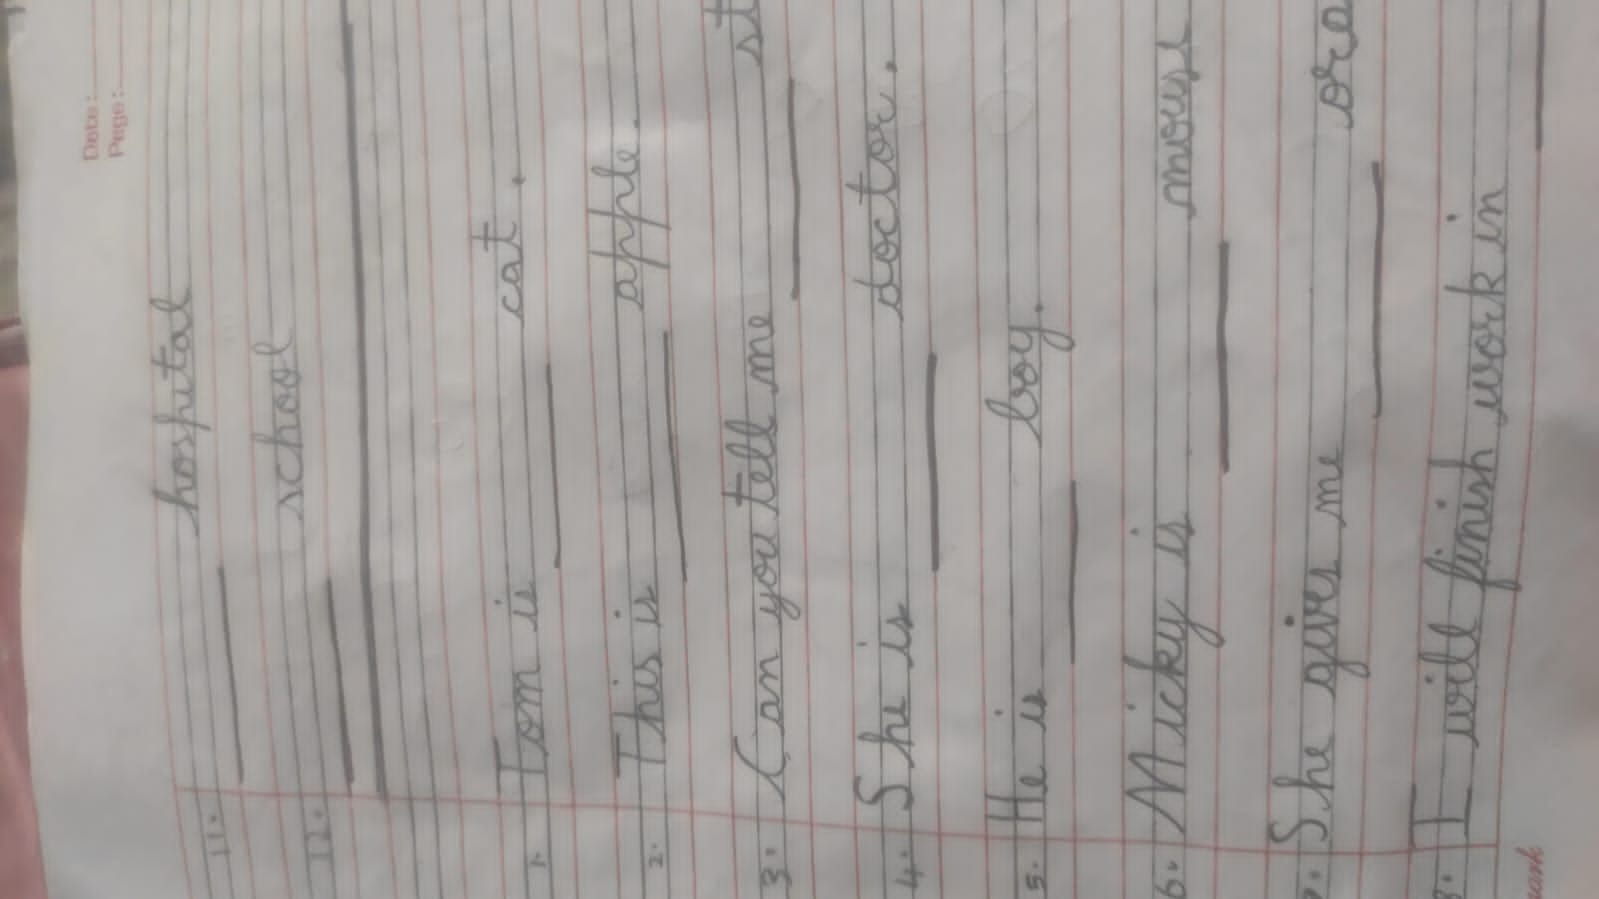 Date:
Page:
11. ____ hospital
12. ____ school
1. Tom is ____ cat.
2. This is ____ apple.
3. Can you tell me ____ st
4. She is ____ doctor.
5. He is ____ boy.
6. Micky is ____ mouse
7. She gives me ____ ora
8. I will finish work in ____